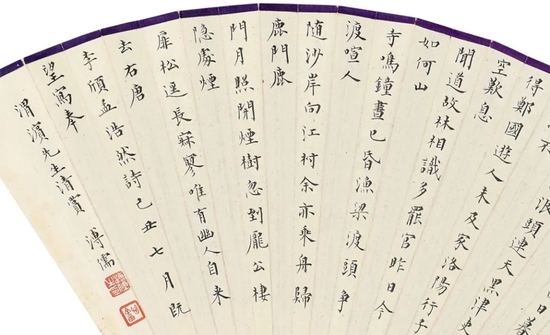 日暮
浪頭連天黑津
得鄭國遊人未及家洛陽行子
空歎息
聞道故林相識多罷官昨日今
如何山
寺鳴鐘晝已昏漁梁渡頭爭
渡喧人
隨沙岸向江村余亦乘舟歸
鹿門鹿
門月照開煙樹忽到龐公棲
隱處煙
扉松逕長寂寥唯有幽人自来
去右唐
李頎孟浩然詩己丑七月既
望寫奉
渭濱先生清賞 溥儒